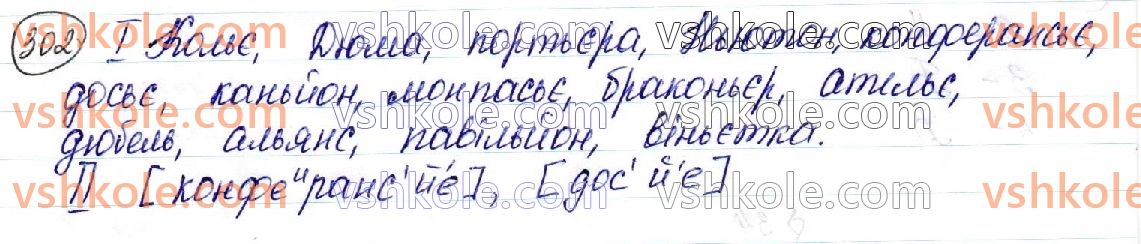 302 I Кольє, Дюма, портьєра, Ньютон, конферансьє,
досьє, каньйон, монпасьє, браконьєр, ательє,
дюбель, альянс, павільйон, віньєтка.
II [конфеᵘранс'й'е], [дос'й'е]
vshkole.com vshkole.com vshkole.com vshkole.com
vshkole.com vshkole.com vshkole.com vshkole.com